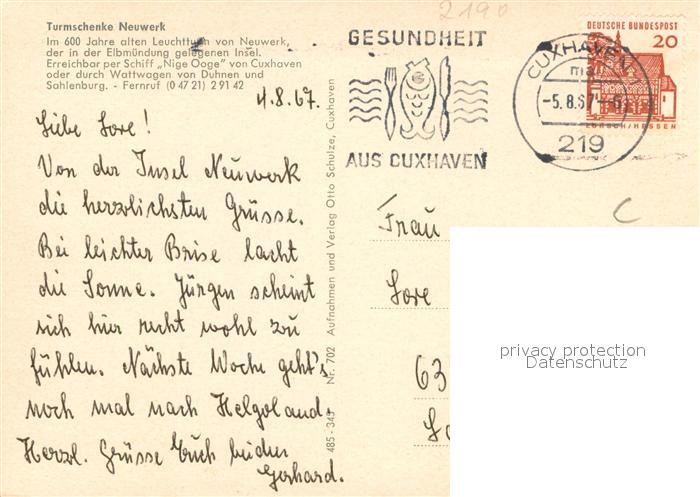 Turmschenke Neuwerk
Im 600 Jahre alten Leuchtturm von Neuwerk,
der in der Elbmündung gelegenen Insel.
Erreichbar per Schiff „Nige Ooge" von Cuxhaven
oder durch Wattwagen von Duhnen und
Sahlenburg. - Fernruf (0 47 21) 2 91 42
4.8.67.
Liebe Lore!
Von der Insel Neuwerk
die herzlichsten Grüsse.
Bei leichter Brise lacht
die Sonne. Jürgen scheint
sich hier recht wohl zu
fühlen. Nächste Woche geht's
noch mal nach Helgoland.
Herzl. Grüsse Euch beiden
Gerhard.
485 - 345 Nr. 702 Aufnahmen und Verlag Otto Schulze, Cuxhaven
2190
GESUNDHEIT
AUS CUXHAVEN
CUXHAVEN
-5.8.67
219
DEUTSCHE BUNDESPOST
20
LORSCH/HESSEN
C
Frau
Lore
63
privacy protection
Datenschutz